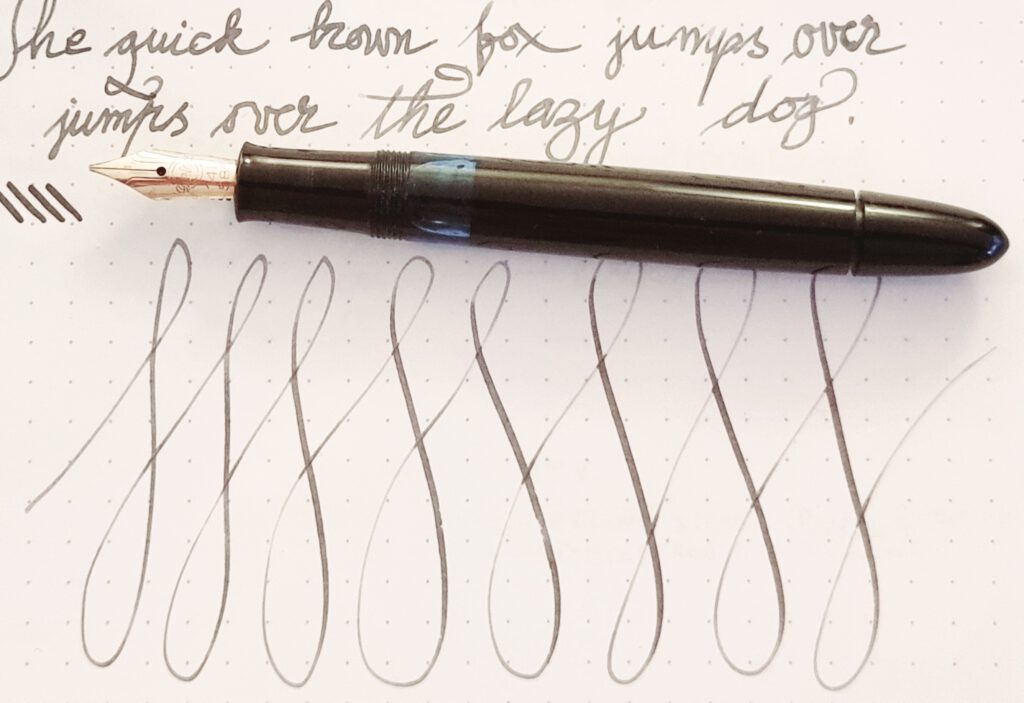 The quick brown fox jumps over
jumps over the lazy dog.